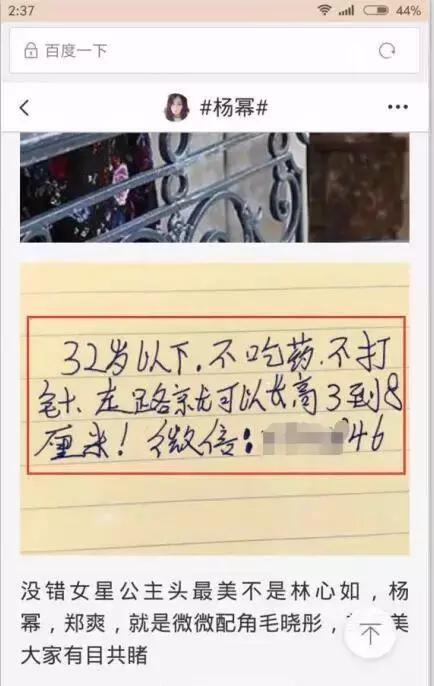 2:37
44%
百度一下
#杨幂#
32岁以下.不吃药.不打
针.走路就可以长高3到8
厘米！微信：46
没错女星公主头最美不是林心如，杨
幂，郑爽，就是微微配角毛晓彤，美
大家有目共睹